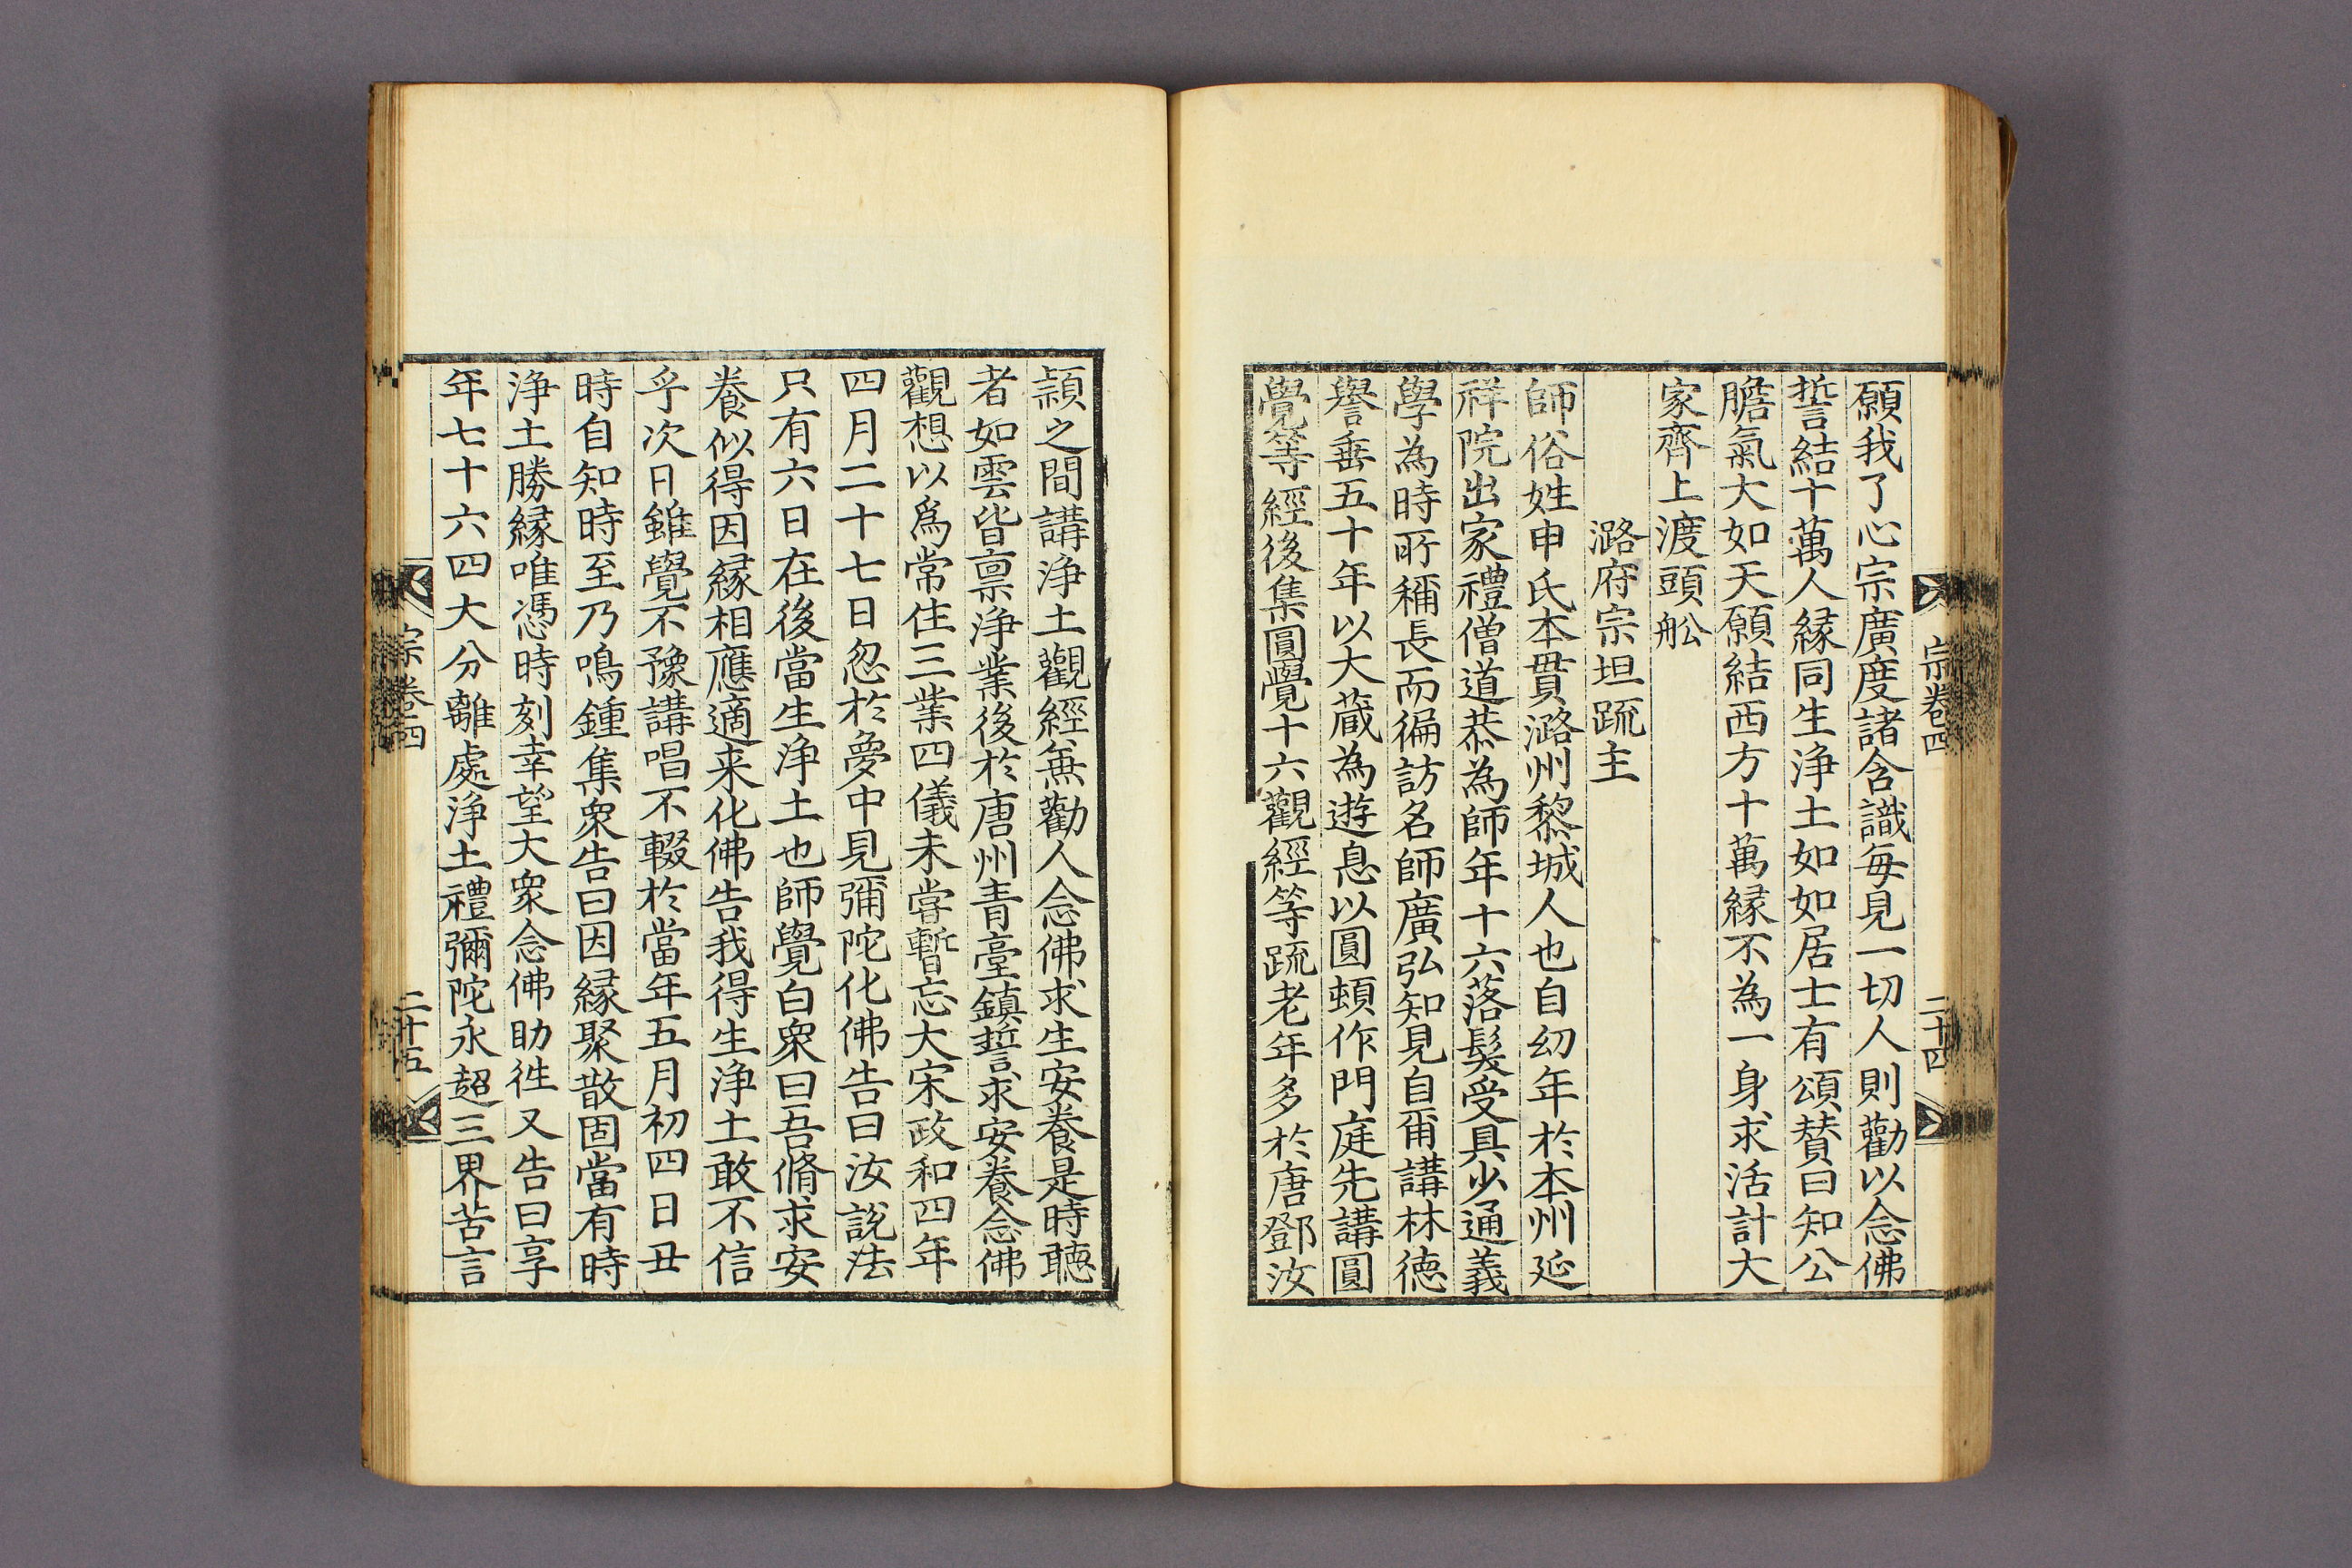 宗卷四
二十四
願我了心宗廣度諸含識每見一切人則勸以念佛
誓結十萬人緣同生淨土如如居士有頌贊曰知公
膽氣大如天願結西方十萬緣不為一身求活計大
家齊上渡頭舩
潞府宗坦疏主
師俗姓申氏本貫潞州黎城人也自幼年於本州延
祥院出家禮僧道恭為師年十六落髮受具少通義
學為時所稱長而徧訪名師廣弘知見自爾講林德
譽垂五十年以大藏為遊息以圓頓作門庭先講圓
覺等經後集圓覺十六觀經等疏老年多於唐鄧汝
潁之間講淨土觀經無勸人念佛求生安養是時聽
者如雲皆禀淨業後於唐州青臺鎮誓求安養念佛
觀想以為常住三業四儀未嘗暫忘大宋政和四年
四月二十七日忽於夢中見彌陀化佛告曰汝說法
只有六日在後當生淨土也師覺白衆曰吾脩求安
養似得因緣相應適来化佛告我得生淨土敢不信
乎次日雖覺不豫講唱不輟於當年五月初四日丑
時自知時至乃鳴鍾集衆告曰因緣聚散固當有時
淨土勝緣唯憑時刻幸望大衆念佛助徃又告曰享
年七十六四大分離處淨土禮彌陀永超三界苦言
宗卷四
二十五